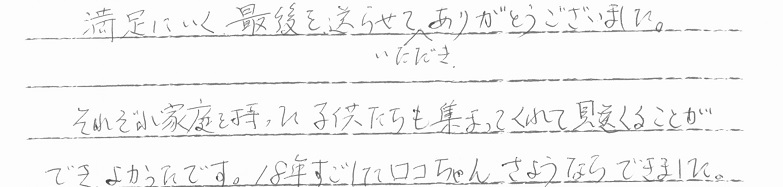 満足にいく最後を送らせて、ありがとうございました。
いただき
それぞれ家庭を持った子供たちも集まってくれて見送くることが
できよかったです。18年すごしたロコちゃんさようならできました。